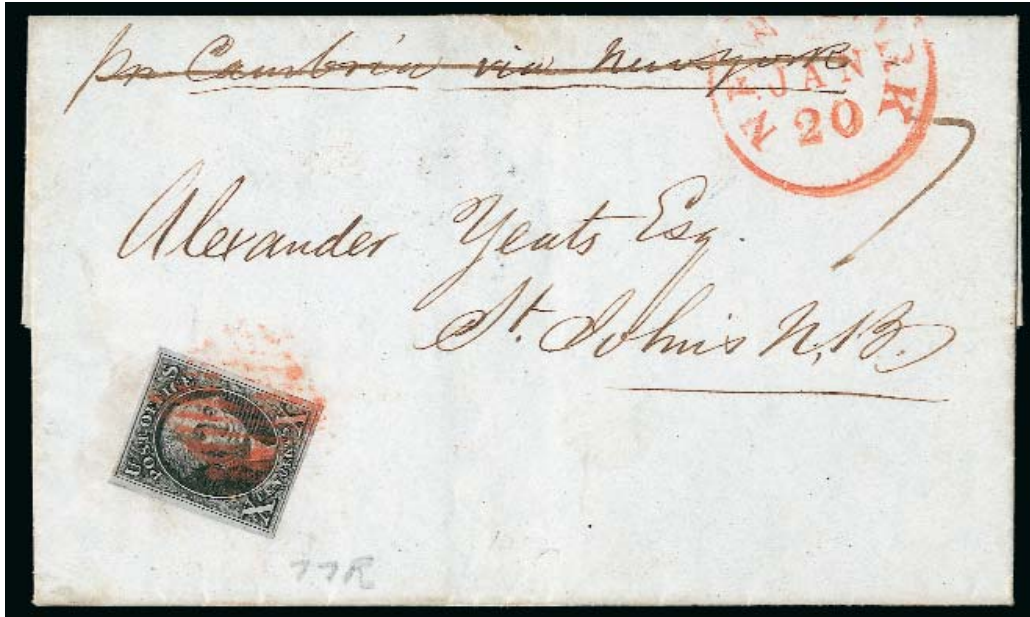 pr Cambria via Newyork
JAN
20
7
Alexander Yeats Esq.
St. Johns N.B.
POST OFFICE
U S
X TEN CENTS X
77R